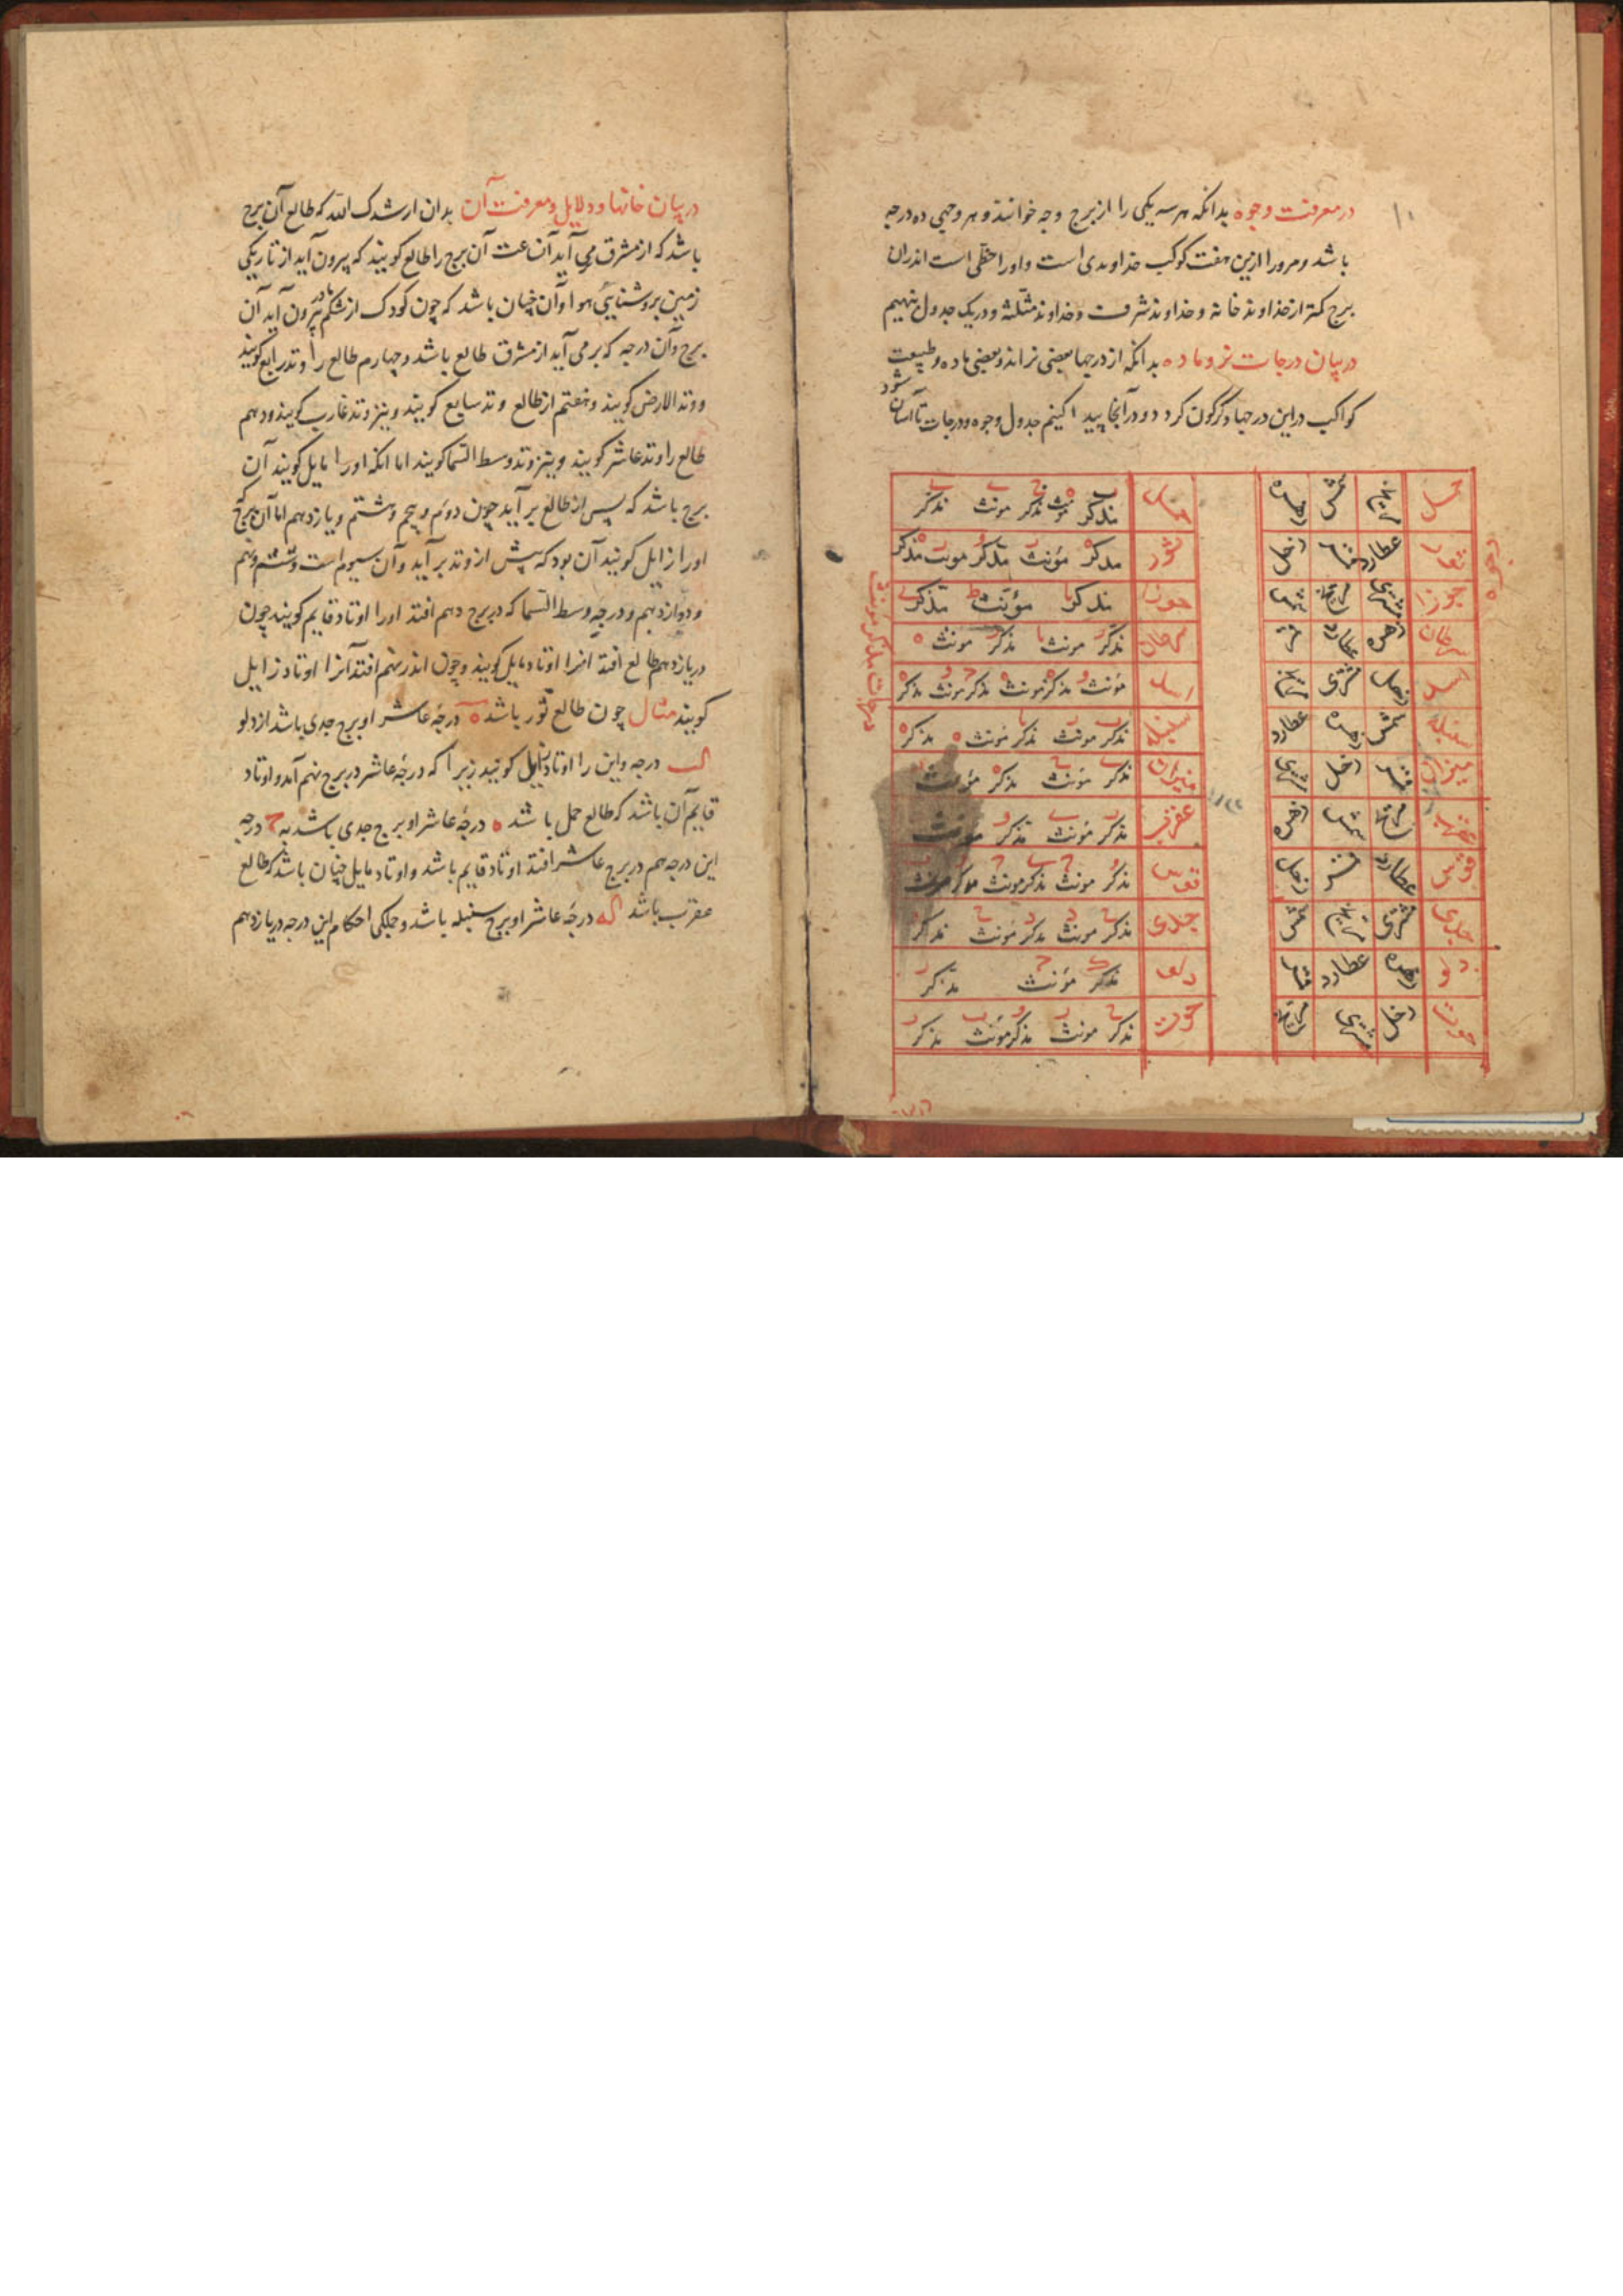 در معرفت وجوه بدانکه هر سه یکی را از برج وجه خوانند و هر وجهی ده درجه
باشد و مرورا ازین هفت کوکب خداوندی است و اورا حظی است اندران
برج کمتر از خداوند خانه و خداوند شرف و خداوند مثلثه و در یک جدول بنهیم
در بیان درجات نر و ماده بدانکه از درجها بعضی نر اند و بعضی ماده و طبیعت
کواکب در این درجها دکرکون کردد و در آنجا پیدا کنیم جدول وجوه و درجات تا آسان شود
وجوه
حمل مریخ شمس زهره
ثور عطارد قمر زحل
جوزا مشتری مریخ شمس
سرطان زهره عطارد قمر
اسد زحل مشتری مریخ
سنبله شمس زهره عطارد
میزان قمر زحل مشتری
عقرب مریخ شمس زهره
قوس عطارد قمر زحل
جدی مشتری مریخ شمس
دلو زهره عطارد قمر
حوت زحل مشتری مریخ
درجات مذکر مونث
حمل مذکر مونث مذکر مونث مذکر
ثور مذکر مونث مذکر مونث مذکر
جوزا مذکر مونث مذکر
سرطان مذکر مونث مذکر مونث
اسد مونث مذکر مونث مذکر مونث مذکر
سنبله مذکر مونث مذکر مونث مذکر
میزان مذکر مونث مذکر مونث
عقرب مذکر مونث مذکر مونث
قوس مذکر مونث مذکر مونث مذکر مونث
جدی مذکر مونث مذکر مونث مذکر
دلو مذکر مونث مذکر
حوت مذکر مونث مذکر مونث مذکر
در بیان خانها و دلایل و معرفت آن بدان ارشدک الله که طالع آن برج
باشد که از مشرق می آید آن ساعت آن برج را طالع کویند که بیرون آید از تاریکی
زمین بروشنایی هوا و آن چنان باشد که چون کودک از شکم مادر بیرون آید آن
برج و آن درجه که بر می آید از مشرق طالع باشد و چهارم طالع را وتد رابع کویند
و وتد الارض کویند و هفتم از طالع وتد سابع کویند و نیز وتد غارب کویند و دهم
طالع را وتد عاشر کویند و نیز وتد وسط السما کویند اما انکه اورا مایل کویند آن
برج باشد که پس از طالع بر آید چون دوم و پنجم و هشتم و یازدهم اما آن برج که
اورا زایل کویند آن بود که پیش از وتد بر آید و آن سیوم است و ششم و نهم
و دوازدهم و درجه وسط السما که در برج دهم افتد اورا اوتاد قایم کویند چون
در یازدهم طالع افتد انرا اوتاد مایل کویند و چون اندر نهم افتد آنرا اوتاد زایل
کویند مثال چون طالع ثور باشد ه درجه عاشر او برج جدی باشد از دلو
درجه و این را اوتاد زایل کویند زیرا که درجه عاشر در برج نهم آمد و اوتاد
قایم آن باشد که طالع حمل باشد ه درجه عاشر او برج جدی باشد به ح درجه
این درجه هم در برج عاشر افتد اوتاد قایم باشد و اوتاد مایل چنان باشد که طالع
عقرب باشد درجه عاشر او برج سنبله باشد و جملکی احکام این درجه در یازدهم